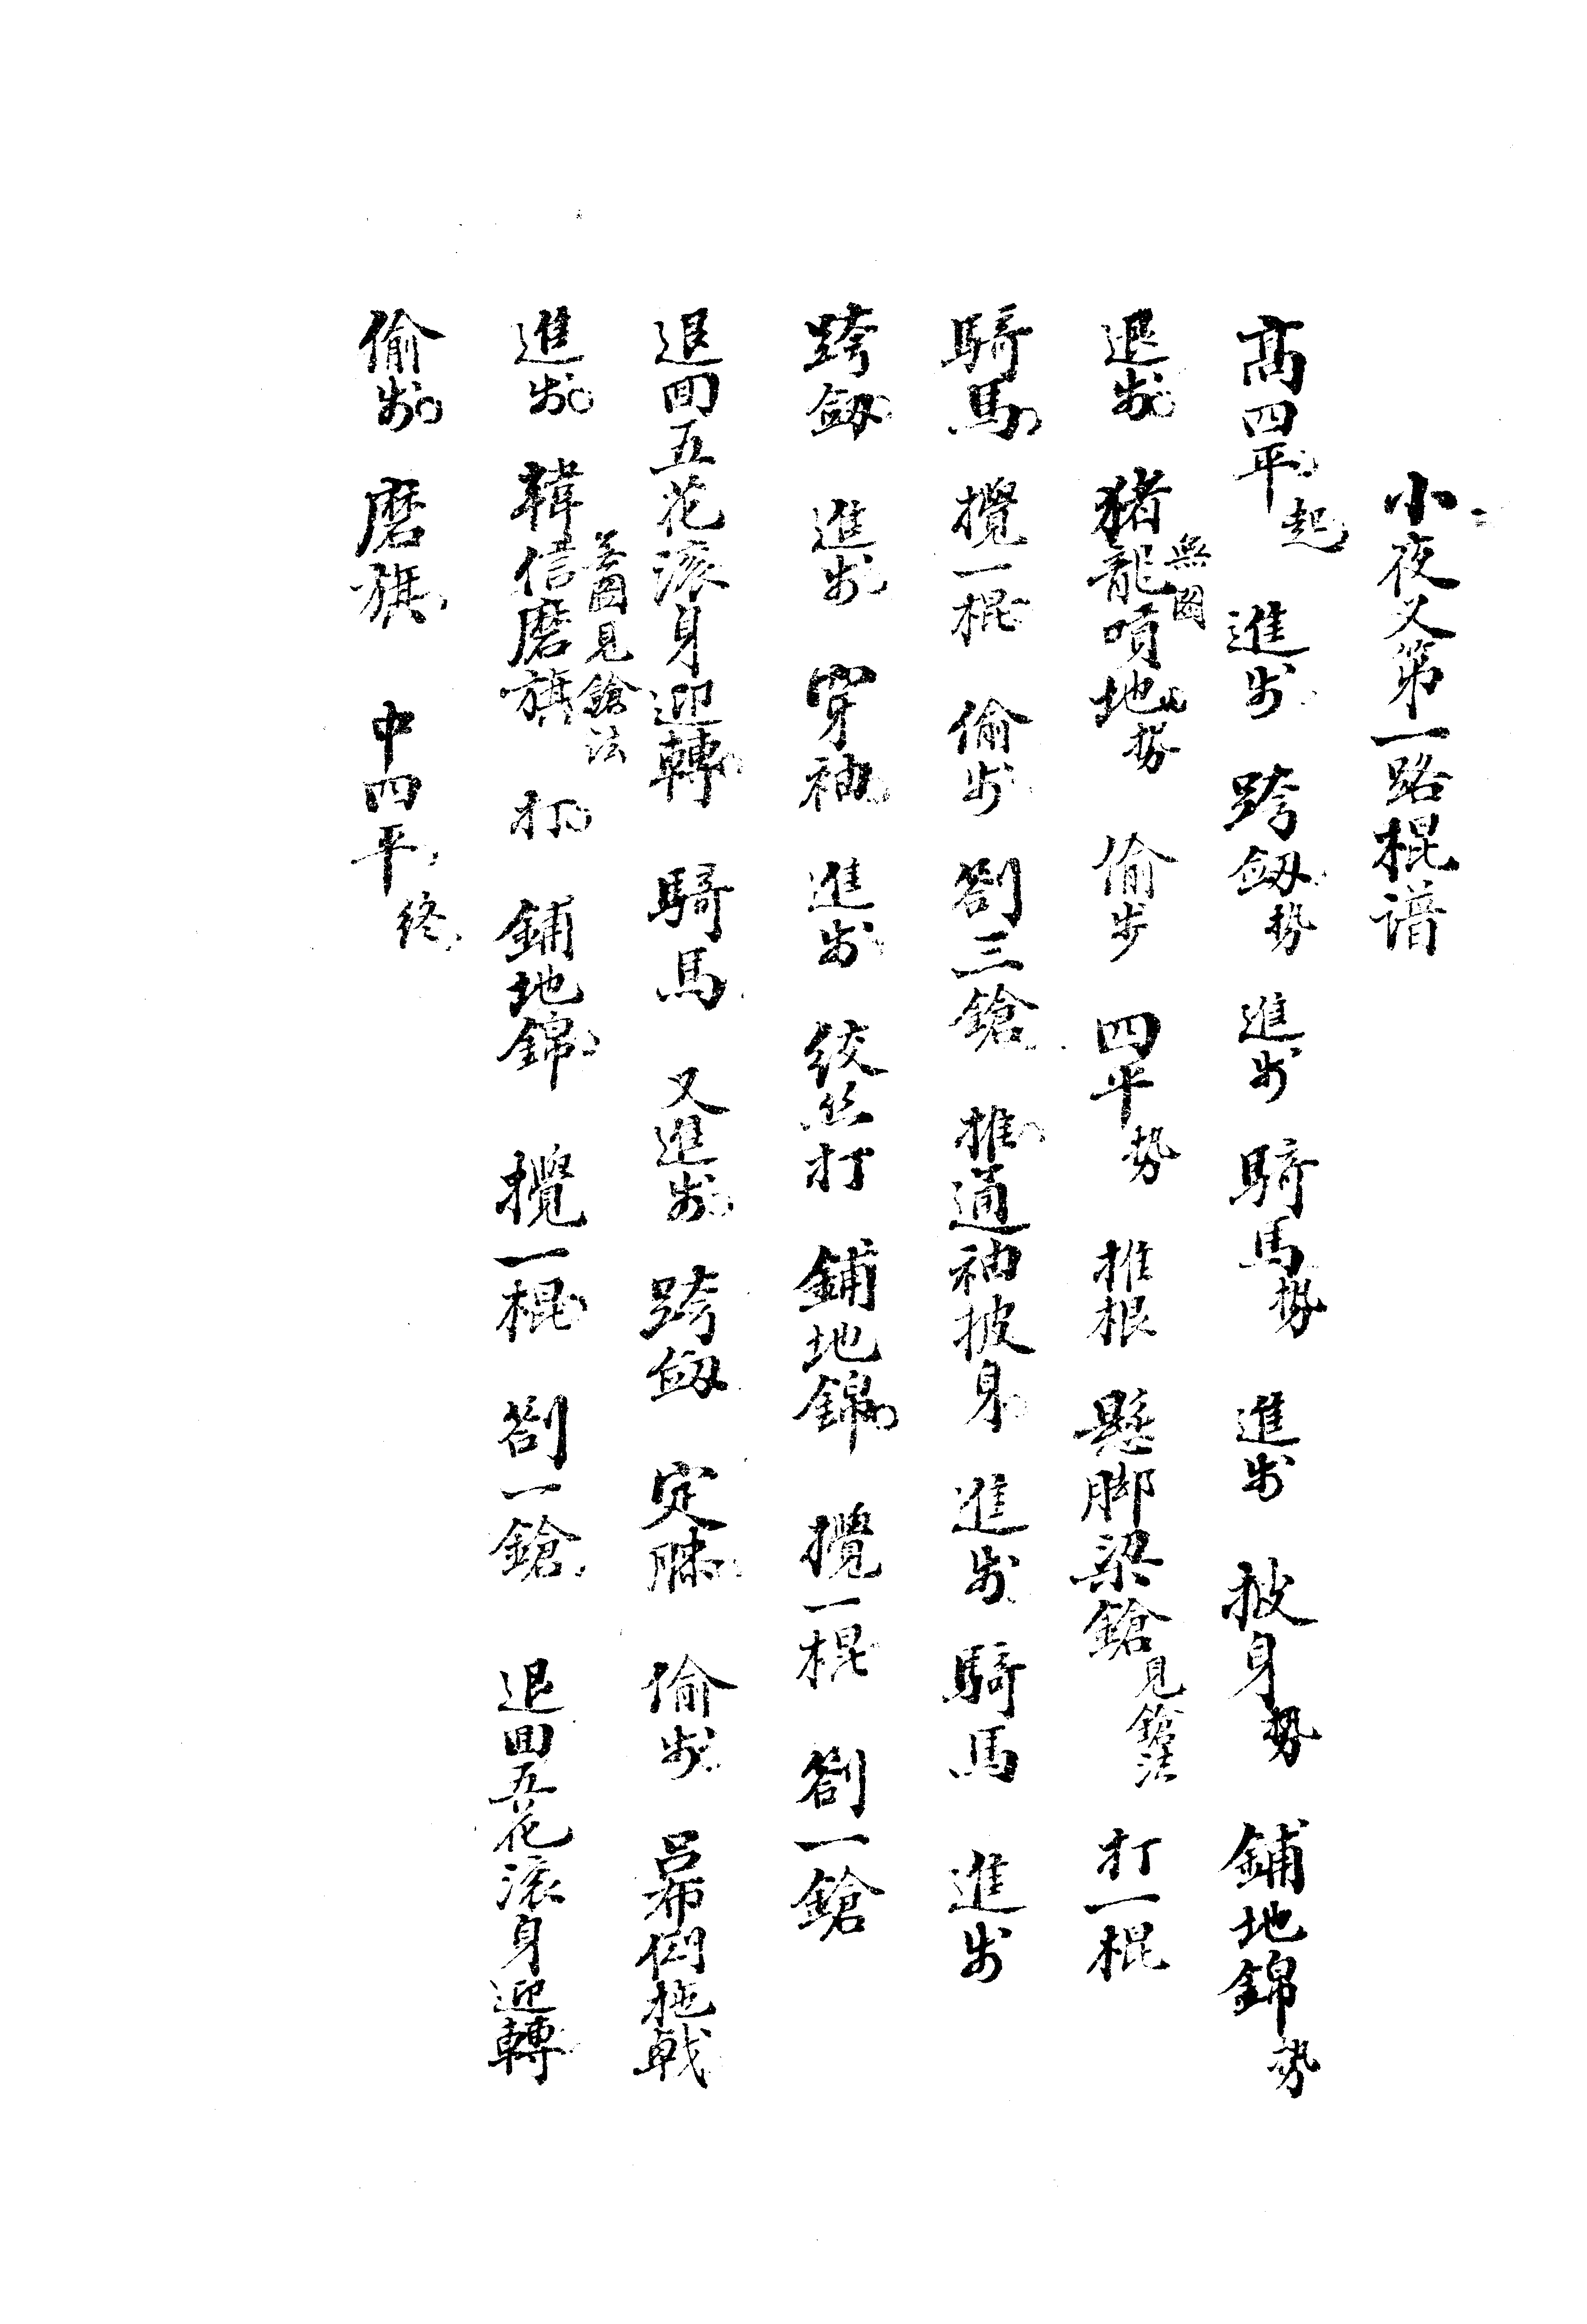 小夜叉第一路棍譜
高四平起 進步 跨劔勢 進步 騎馬勢 進步 披身勢 鋪地錦勢
退步 猪龍噴地勢 偷步 四平勢 推根 懸脚梁鎗見鎗法 打一棍
無图
騎馬 攪一棍 偷步 劄三鎗 推通袖披身 進步 騎馬 進步
跨劔 進步 穿袖 進步 絞丝打 鋪地錦 攪一棍 劄一鎗
退回五花滚身迎轉 騎馬 又進步 跨劔 定膝 偷步 吕布倒拖戟
進步 韓信磨旗 打 鋪地錦 攪一棍 劄一鎗 退回五花滚身迎轉
图見鎗法
偷步 磨旗 中四平終